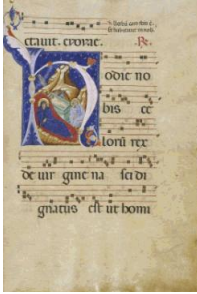 ctauit. crorac. R.
odic no
bis ce
lorū rex
de uir gine na sci di
gnatus est ut homi